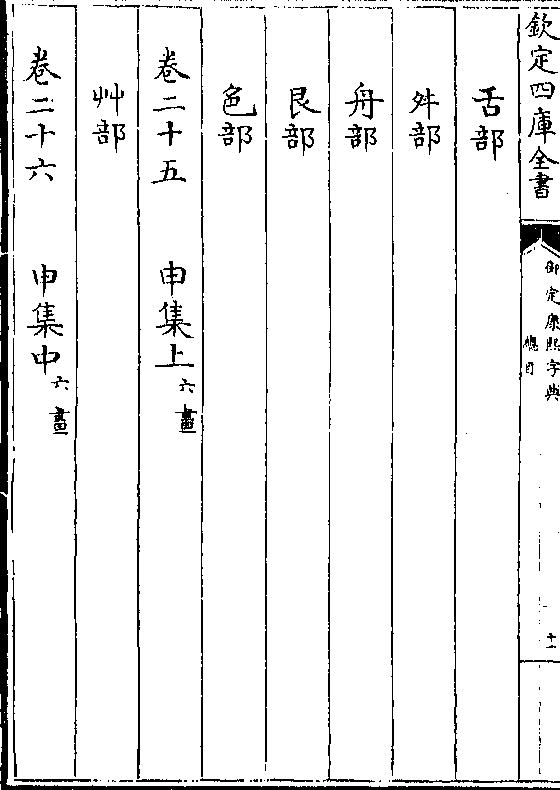 欽定四庫全書
御定康熙字典
總目
十一
舌部
舛部
舟部
艮部
色部
卷二十五 申集上六畫
艸部
卷二十六 申集中六畫